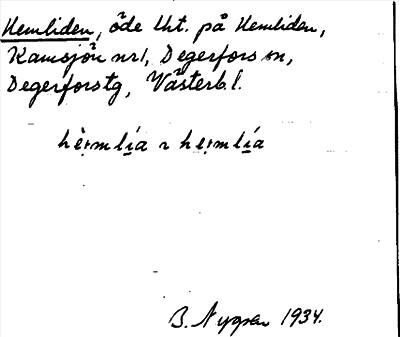 Hemliden, öde lht. på Hemliden,
Kamsjön nr 1, Degerfors sn,
Degerfors tg, Västerb. l.
hèr̥mlía ~ her̥mlía
B. Nygren 1934.